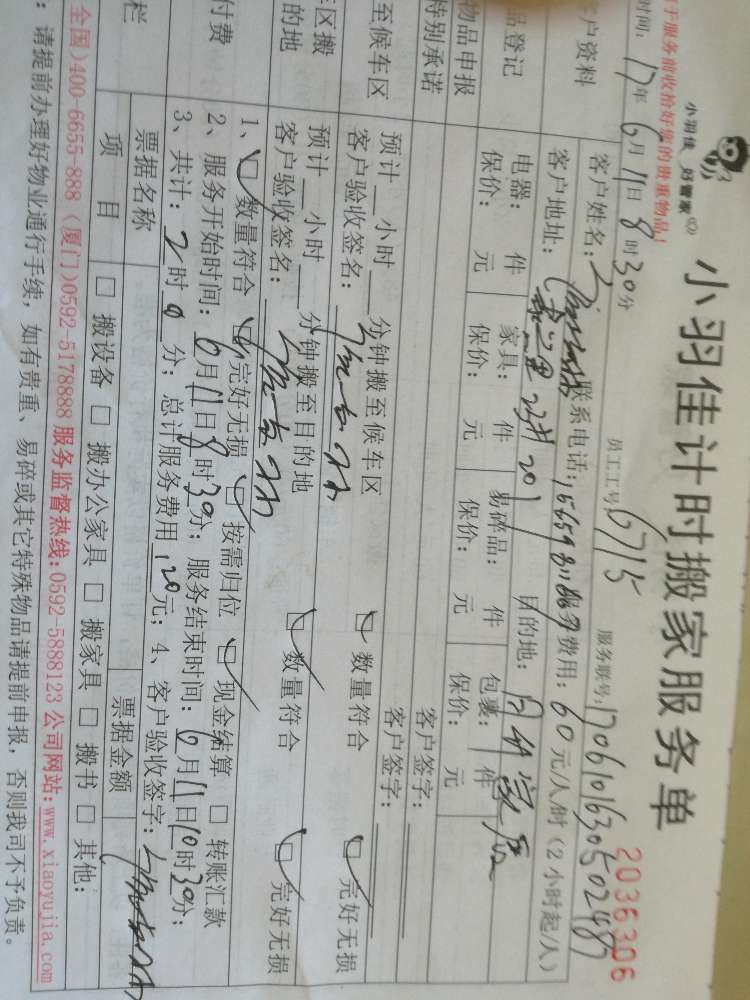 小羽佳 好管家
小羽佳计时搬家服务单
2036306
于服务前收拾好您的贵重物品!
时间: 17年6月11日8时30分 员工工号: 6715 服务联号: 170610163050248
户资料
客户姓名: 联系电话: 服务费用: 60元/人/时（2小时起/人）
客户地址: 201 目的地:
品登记
电器: 件 家具: 件 易碎品: 件 包裹: 件
保价: 元 保价: 元 保价: 元 保价: 元
物品申报 客户签字:
特别承诺 客户签字:
至候车区
预计__小时__分钟搬至候车区 数量符合 完好无损
客户验收签名:
区搬
的地
预计__小时__分钟搬至目的地 数量符合 完好无损
客户验收签名:
付费
1、数量符合 完好无损 按需归位 现金结算 转账汇款
2、服务开始时间: 6月11日8时30分; 服务结束时间: 6月11日10时30分;
3、共计: 2时0分; 总计服务费用120元; 4、客户验收签字:
栏
票据名称 票据金额
项 目 搬设备 搬办公家具 搬家具 搬书 其他:
全国)400-6655-888 (厦门)0592-5178888 服务监督热线:0592-5888123 公司网站:www.xiaoyujia.com
: 请提前办理好物业通行手续, 如有贵重、易碎或其它特殊物品请提前申报, 否则我司不予负责。